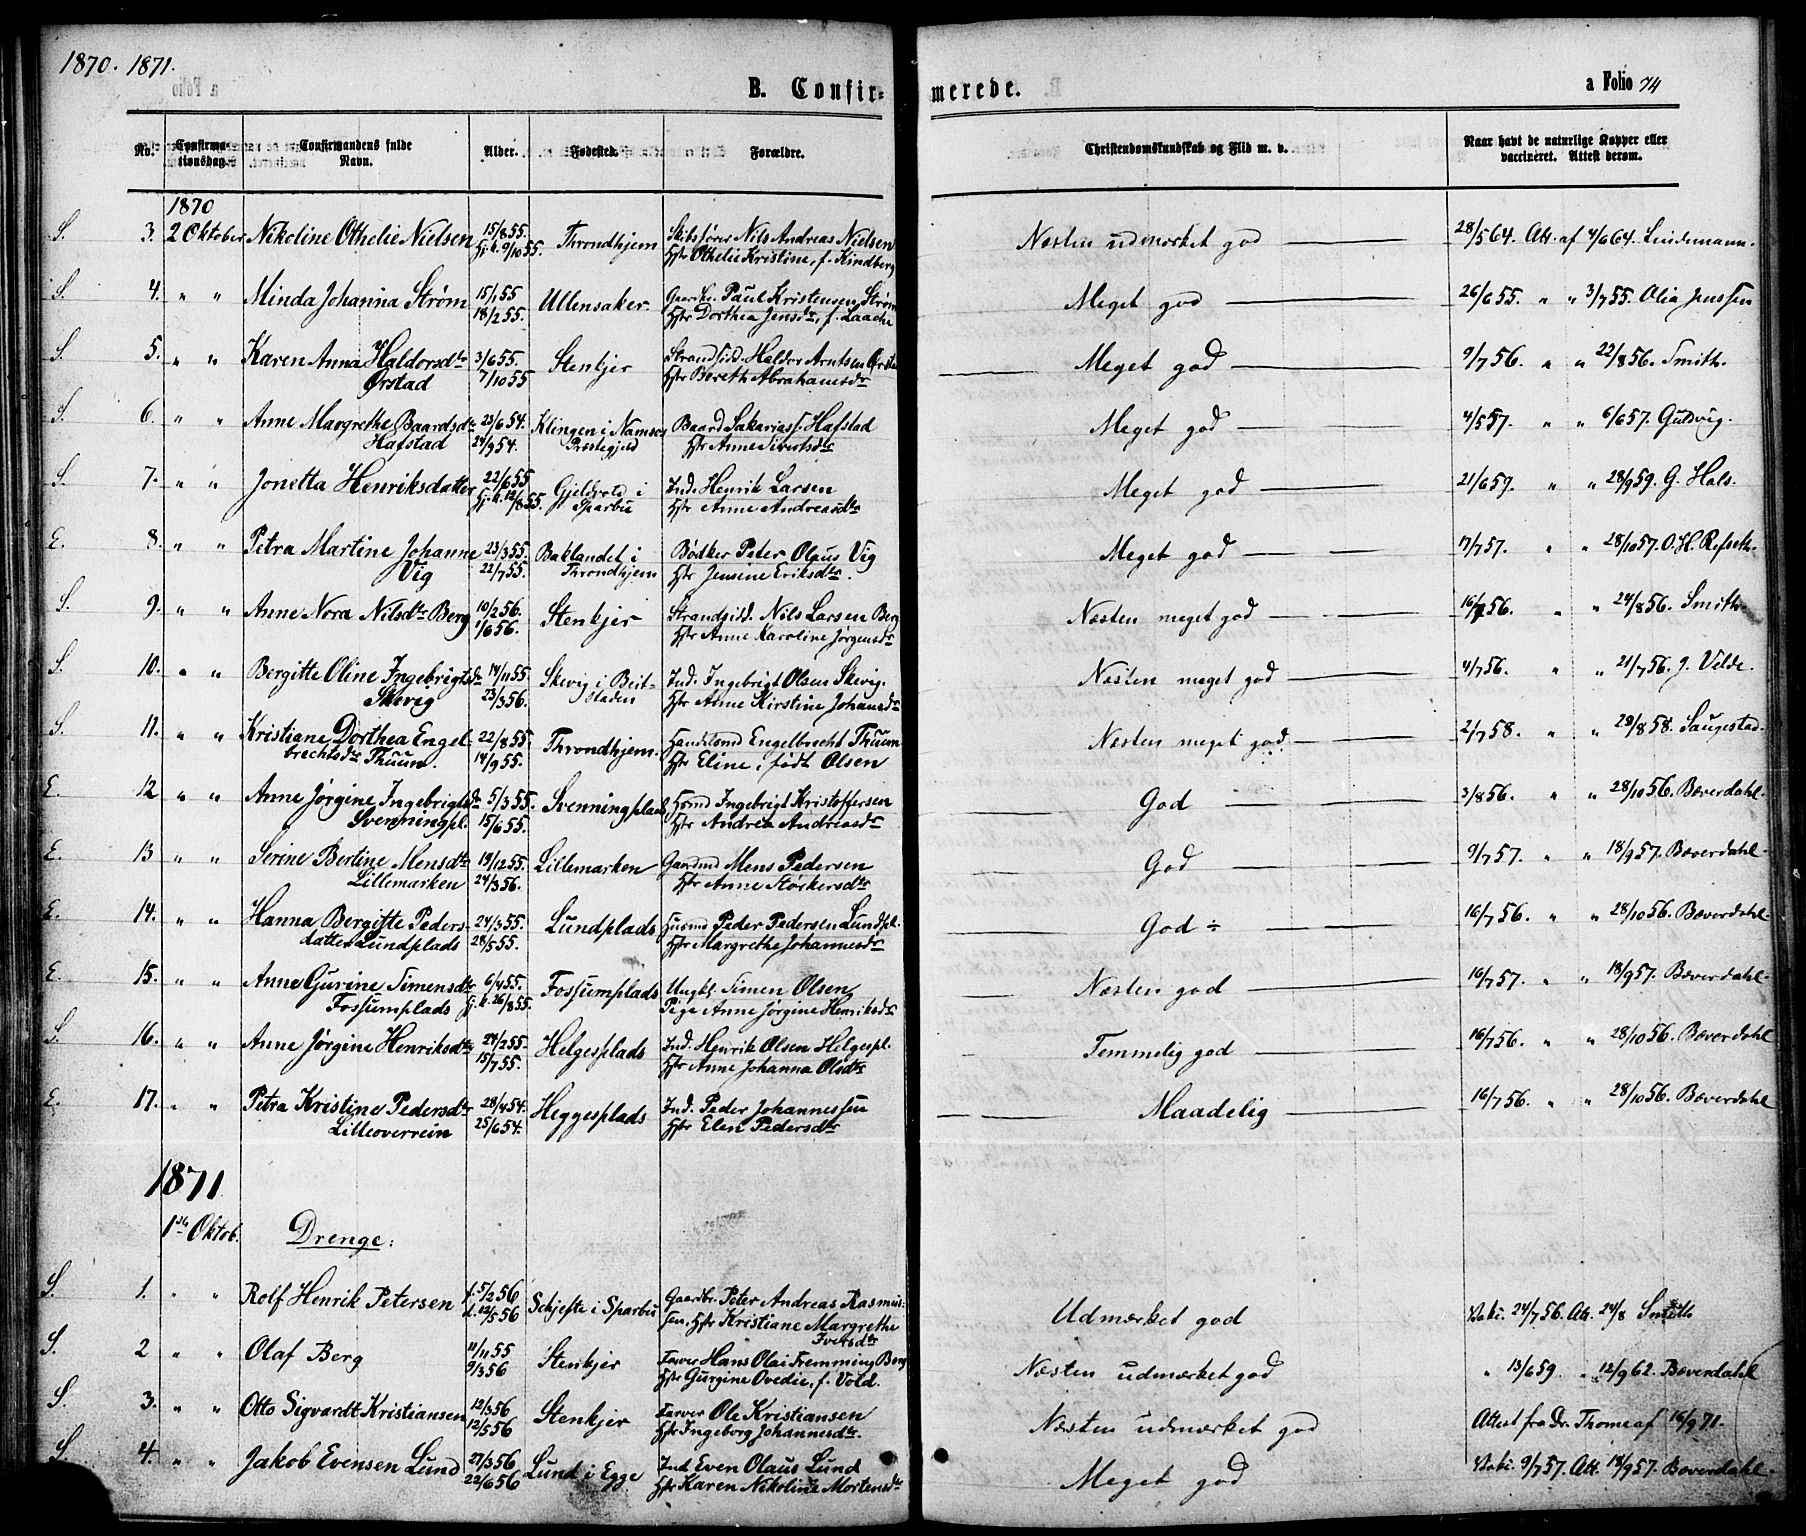 1870. 1871.
B. Confirmerede.
a Folio 74
No. Confirmationsdag. Confirmandens fulde Navn. Alder. Fødested. Forældre. Christendomskundskab og Flid m. v. Naar havt de naturlige Kopper eller vaccineret. Attest derom.
1870
S. 3. 2 Oktober Nikoline Othelie Nielsen 15/8 55. Throndhjem Skibsfører Nils Andreas Nielsen Næsten udmærket god 28/5 64. Att. af 4/6 64. Lindemann.
Hj. d. 9/10 55. Hstr Othelie Kristine, f. Kindberg
S. 4. " " Minda Johanina Strøm 15/1 55 Ullensaker. Paul Kristensen Strøm Meget god 26/6 55. " " 3/7 55. Olia Jenssen
18/2 55. Hstr Dorthea Jensdr, f. Laache
S. 5. " " Karen Anna Haldorsdtr 3/6 55. Stenkjer Strandsidd. Haldor Arntsen Ørstad Meget god 9/7 56. " " 22/8 56. Smith.
Ørstad 7/10 55 Hstr Bereth Abrahamsdr
S. 6. " " Anne Margrethe Baardsdtr 23/6 54. Klingen i Namsos Baard Sakariass. Hafstad Meget god 4/5 57. " " 6/6 57. Guldvig.
Hafstad 24/9 54. Præstegjeld Hstr Anne Sivertsdtr
S. 7. " " Jonetta Henriksdatter 22/6 55 Gjeldvold i Ind. Henrik Larsen Meget god 21/6 59. " " 28/9 59. G. Hals.
Hj. d. 12/8 55. Sparbu Hstr Anne Andreasdtr
E. 8. " " Petra Martine Johanne 23/3 55. Baklandet i Bødker Peter Olaus Vig Meget god 17/7 57. " " 28/10 57. O. H. Refseth.
Vig 22/7 55. Throndhjem Hstr Jensine Eriksdtr.
S. 9. " " Anne Nora Nilsdtr Berg 10/2 56. Stenkjer Strandsidd. Nils Larsen Berg Næsten meget god 16/7 56. " " 24/8 56. Smith.
1/6 56. Hstr Anne Karoline Jørgensdr
S. 10. " " Bergitte Oline Ingebrigtsdr 14/11 55. Skevig i Beit- Ind. Ingebrigt Olsen Skevig. Næsten meget god 4/7 56. " " 21/7 56. J. Velde.
Skevig 23/3 56. staden Hstr Anne Kirstine Johansdr
S. 11. " " Kristiane Dorthea Engel- 22/8 55. Throndhjem. Handelsmd Engelbrecht Thuum Næsten meget god. 2/7 58. " " 29/8 58. Saugestad.
brechtsdtr Thuum. 14/9 55. Hstr Eline, født Olsen
E. 12 " " Anne Jørgine Ingebrigtsdr 5/3 55. Svenningplads Husmd Ingebrigt Kristoffersen God 3/8 56. " " 28/10 56. Bæverdahl.
Svenningpl. 15/6 55. Hstr Andrea Andreasdr
E. 13 " " Serine Bertine Mensdtr 19/12 55. Lillemarken Gaardmd Mens Pedersen God 9/7 57. " " 18/9 57. Bæverdahl.
Lillemarken 24/3 56. Hstr Anne Størkersdtr
E. 14. " " Hanna Bergitte Peders- 24/3 55. Lundplads Husmd Peder Pedersen Lundpl. God ÷ 16/7 56. " " 28/10 56. Bæverdahl.
datter Lundplads 28/5 55. Hstr Margrethe Johannesdr
E. 15. " " Anne Gurine Simensdtr 6/4 55. Fossumplads Ungkl Simen Olsen Næsten god 16/7 57. " " 18/9 57. Bæverdahl.
Fossumplads Hj. d. 26/8 55. Pige Anne Jørgine Henriksdr
S. 16. " " Anne Jørgine Henriksdtr 24/2 55. Helgesplads Ind. Henrik Olsen Helgespl. Temmelig god 16/7 56. " " 28/10 56. Bæverdahl
15/7 55. Hstr Anne Johanna Olsdtr
E. 17. " " Petra Kristine Pedersdtr 28/4 54. Heggesplads Ind. Peder Johannessen Maadelig 16/7 56. " " 28/10 56. Bæverdahl
Lilleoverrein 25/6 54. Hstr Elen Pedersdtr
1871
1ste Oktob. Drenge:
S. 1. " " Rolf Henrik Petersen f. 5/2 56 Schjefte i Sparbu Gaardbr. Peter Andreas Rasmus- Udmærket god Vakc. 24/7 56. Att. 24/8 Smith
d. 12/5 56 sen, Hstr Kristiane Margrethe
Iversdtr
S. 2 " " Olaf Berg 11/11 55 Stenkjer Farver Hans Olai Fremming Berg Næsten udmærket god " 13/6 59. " 12/9 62. Bæverdahl
9/3 56 Hstr Gurgine Ovedie, f. Vold.
S. 3. " " Otto Sigvardt Kristiansen 12/3 56 Stenkjer Farver Ole Kristiansen Næsten udmærket god Attest fra Dr. Thome af 16/9 71.
12/5 56 Hstr Ingeborg Johannesdtr.
S. 4. " " Jakob Evensen Lund 27/3 56 Lund i Egge Ind Even Olaus Lund Meget god Vakc. 9/7 57. Att. 18/9 57. Bæverdahl.
22/6 56 Hstr Karen Nikoline Mortensdtr